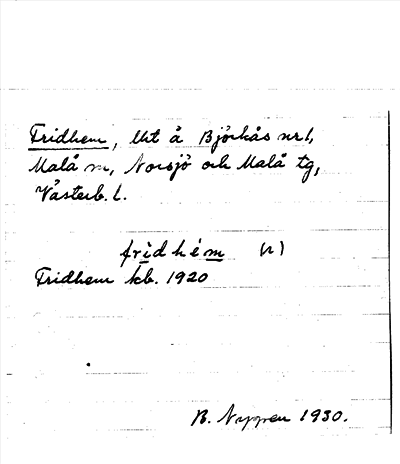 Fridhem, lht å Björkås nr 1,
Malå sn, Norsjö och Malå tg,
Västerb. l.
frìdhém (n)
Fridhem kb. 1920
B. Nygren 1930.